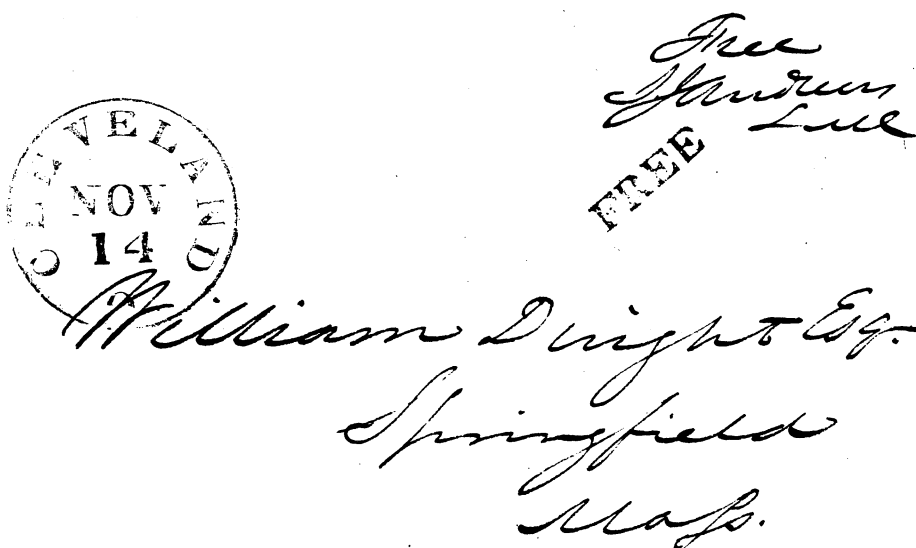 Free
SJAndrews
FREE
CLEVELAND
NOV
14
William Dwight Esq.
Springfield
Maſs.